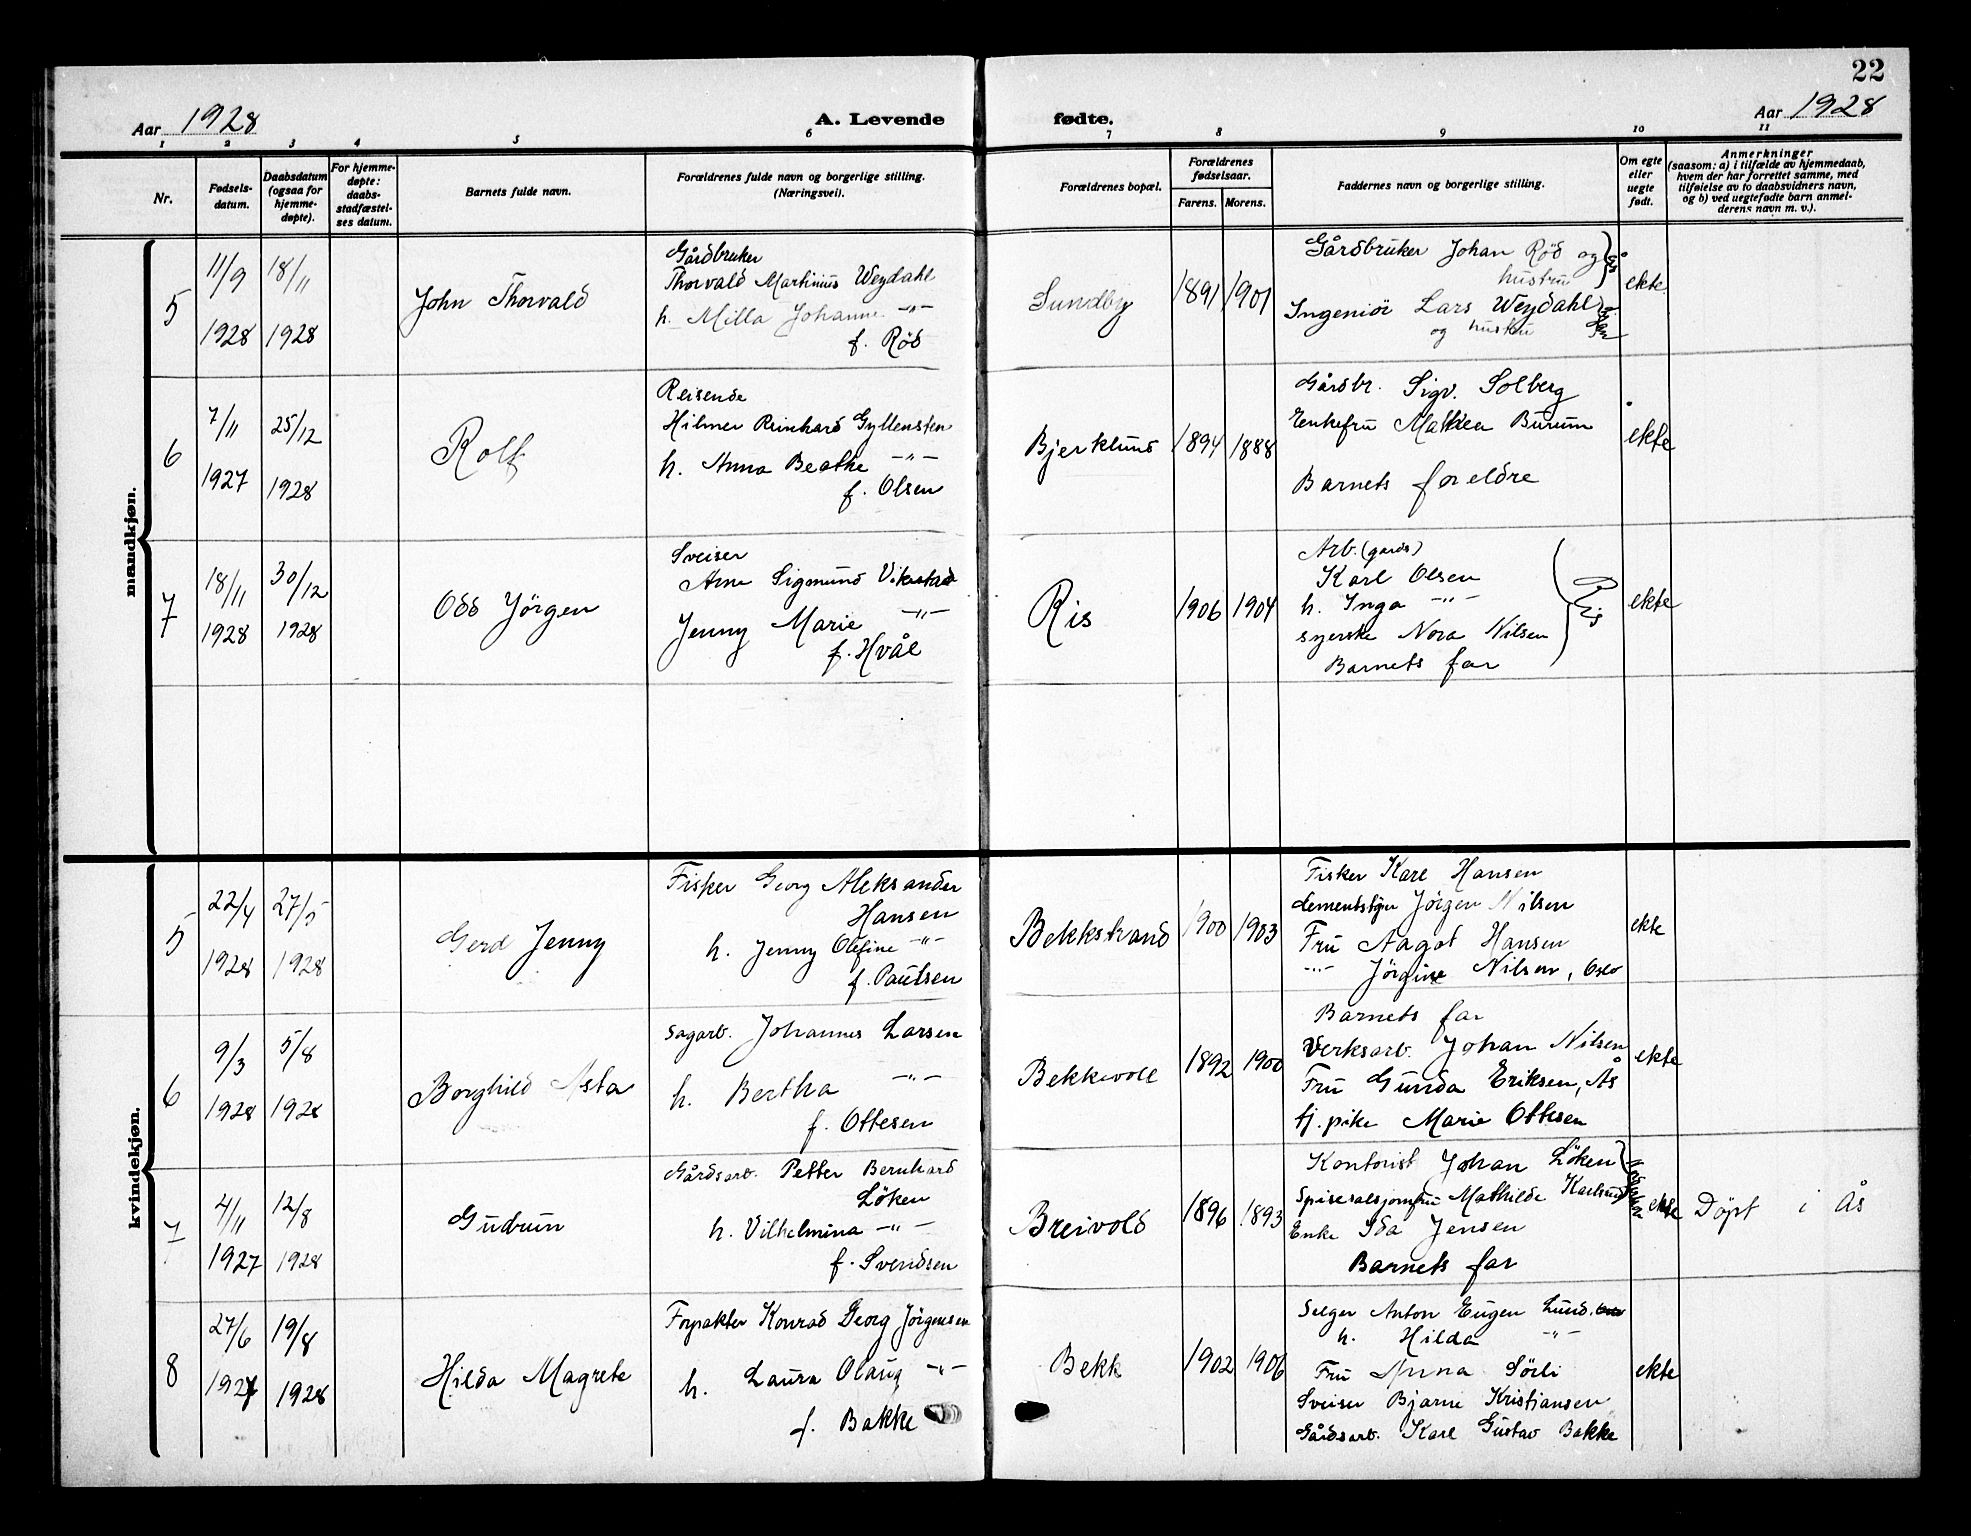 22
Aar 1928
A. Levende fødte.
Aar 1928
1 2 3 4 5 6 7 8 9 10 11
Nr.
Fødsels-
datum.
Daabsdatum
(ogsaa for
hjemme-
døpte).
For hjemme-
døpte:
daabs-
stadfæstel-
ses datum.
Barnets fulde navn.
Forældrenes fulde navn og borgerlige stilling.
(Næringsvei).
Forældrenes bopæl.
Forældrenes
fødselsaar.
Farens. Morens.
Faddernes navn og borgerlige stilling.
Om egte
eller
uegte
født.
Anmerkninger
(saasom: a) i tilfælde av hjemmedaab,
hvem der har forrettet samme, med
tilføielse av to daabsvidners navn,
og b) ved uegtefødte barn anmel-
derens navn m. v.).
mandkjøn.
5
11/9
1928
18/11
1928
John Thorvald
Gårdbruker
Thorvald Martinius Weydahl
h. Milla Johanne -"-
f. Röd
Sundby
1891
1901
Gårdbruker Johan Röd og
hustru
Ås
Ingeniör Lars Weydahl
og hustru
ekte
6
7/11
1927
25/12
1928
Rolf
Reisende
Hilmer Reinhard Gyllensten
h. Anna Beathe -"-
f. Olsen
Bjerklund
1894
1888
Gårdbr. Sigv. Solberg
Enkefru Mathea Burum
Barnets foreldre
ekte
7
18/11
1928
30/12
1928
Odd Jörgen
Sveiser
Arne Sigmund Vikstad
Jenny Marie -"-
f. Hvål
Ris
1906
1904
Arb. (gards)
Karl Olsen
h. Inga -"-
syerske Nora Nilsen
Barnets far
Ris
ekte
kvindekjøn.
5
22/4
1928
27/5
1928
Gerd Jenny
Fisker Georg Aleksander
Hansen
h. Jenny Olefine -"-
f. Paulsen
Bekkstrand
1900
1903
Fisker Karl Hansen
Jörgen Nilsen
Fru Aagot Hansen
-"- Jörgine Nilsen, Oslo
ekte
6
9/3
1928
5/8
1928
Borghild Asta
Sagarb. Johannes Larsen
h. Bertha -"-
f. Ottesen
Bekkevoll
1892
1900
Barnets far
Verksarb. Johan Nilsen
Fru Gunda Eriksen, Ås
tj. pike Marie Ottesen
ekte
7
4/11
1927
12/8
1928
Gudrun
Gårdsarb. Petter Bernhard
Löken
h. Vilhelmina -"-
f. Svendsen
Breivold
1896
1893
Kontorist Johan Löken
Spisesalsjomfru Mathilde Karlsrud
Enke Ida Jensen
Barnets far
ekte
Döpt i Ås
8
27/6
1927
19/8
1928
Hilda Magrete
Forpakter Konrad Georg Jörgensen
h. Laura Olaug -"-
f. Bakke
Bekk
1902
1906
Selger Anton Eugen Lund
h. Hilda -"-
Fru Anna Sörli
Sveiser Bjarne Kristiansen
Gårdsarb. Karl Gustav Bakke
ekte